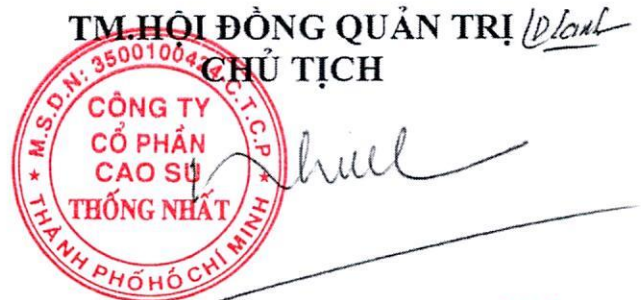 TM.HỘI ĐỒNG QUẢN TRỊ
CHỦ TỊCH
M.S.D.N: 3500100424 C.T.C.P
CÔNG TY
CỔ PHẦN
CAO SU
THỐNG NHẤT
THÀNH PHỐ HỒ CHÍ MINH